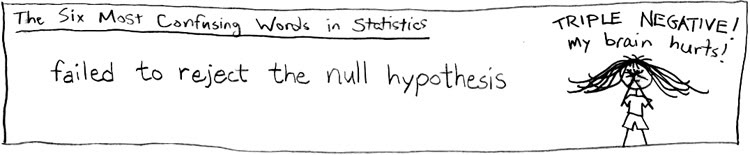 The Six Most Confusing Words in Statistics
TRIPLE NEGATIVE!
my brain hurts!
failed to reject the null hypothesis